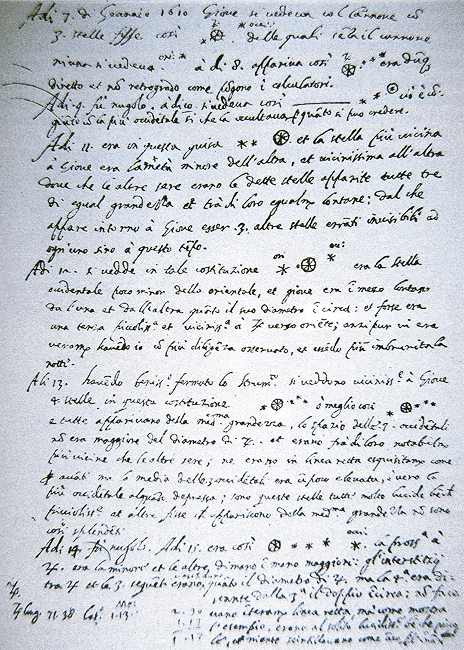 Adi 7. di Gennaio 1610 Giove si vedeva col Cannone cõ
3. stelle fisse così delle quali sẽza il cannone
niuna si vedeva. à dì .8. appariva così era dũq
diretto et nõ retrogrado come põgono i calculatori.
Adi .9. fù nugolo. à dì 10. si vedeva così ciò è cõ-
giũto cõ la più occidẽtale si che la occultava p quãto si può credere.
Adi 11. era in questa guisa et la stella più vicina
à Giove era la metà minore dell'altra, et vicinissima all'altra
dove che le altre sere erano le dette stelle apparite tutte tre
di egual grandezza et trà di loro egualmẽ lontane; dal che
appare intorno à Giove esser .3. altre stelle errãti invisibili ad
ogn'uno sino à questo tẽpo.
Adi 12. si vedde in tale costituzione era la stella
occidentale poco minor della orientale, et giove era ĩ mezo lontano
da l'una et dall'altra quãto il suo diametro ĩ circa: et forse era
una terza piccoliss.ª et viciniss.ª à ♃ verso oriẽte; anzi pur vi era
veramẽ havẽdo io cõ più diligẽza osservato, et essẽdo più imbrunita la
notte.
Adi 13. havẽdo beniss.º fermato lo strum.º si veddono viciniss.e à Giove
4 stelle in questa costituzione ò meglio così
e tutte apparivano della med.ma grandezza, lo spazio delle .3. occidẽtali
nõ era maggiore del diametro di ♃. et erano frà di loro notabilm.
più vicine che le altre sere; ne erano in linea retta esquisitamẽte come
avãti ma la media delle 3 occidẽtali era ũ poco elevata, ò vero la
più occidẽtale alquãto depressa; sono queste stelle tutte molto lucide bẽche
piccoliss.e et altre fisse che appariscono della med.ma grandezza nõ sono
così splendẽti.
Adi 14. fù nugolo. Adi 15. era così la pross.ª à
♃. era la minore et le altre di mano ĩ mano maggiori: gl'interstizij
tra ♃ et le 3. seguẽti erano, quãto il diametro di ♃. ma la 4.ª era di-
stante dalla 3.ª il doppio ĩ circa; nõ face
♃ long. 71.38 lat. 1.13. vano interamẽ linea retta, ma come mostra
l'esempio, erano al solito lucidiss.e bẽche picco
le, et niente scintillavano come